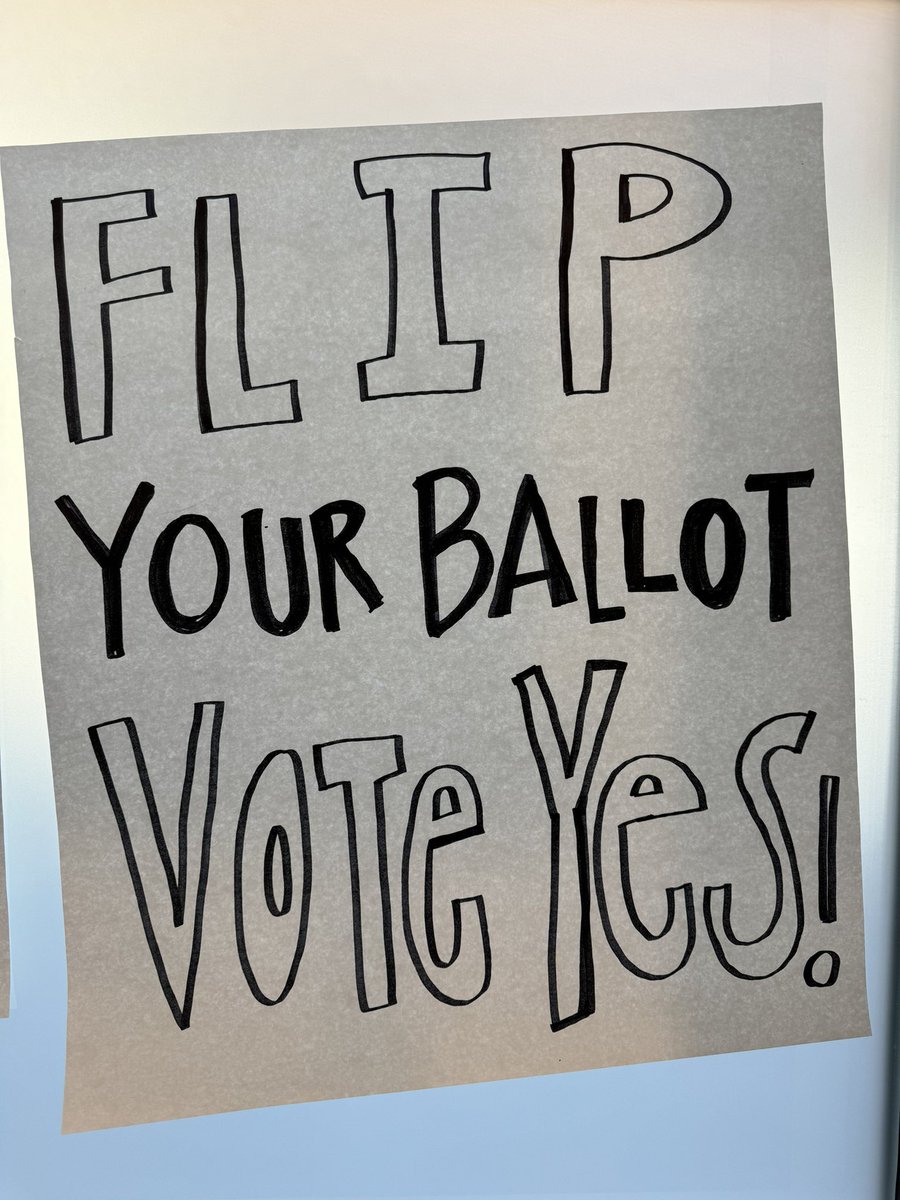 FLIP
YOUR BALLOT
VOTe Yes!